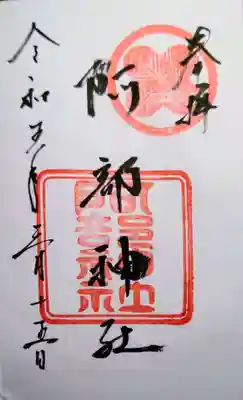 奉拝
阿部神社
令和五年三月十五日